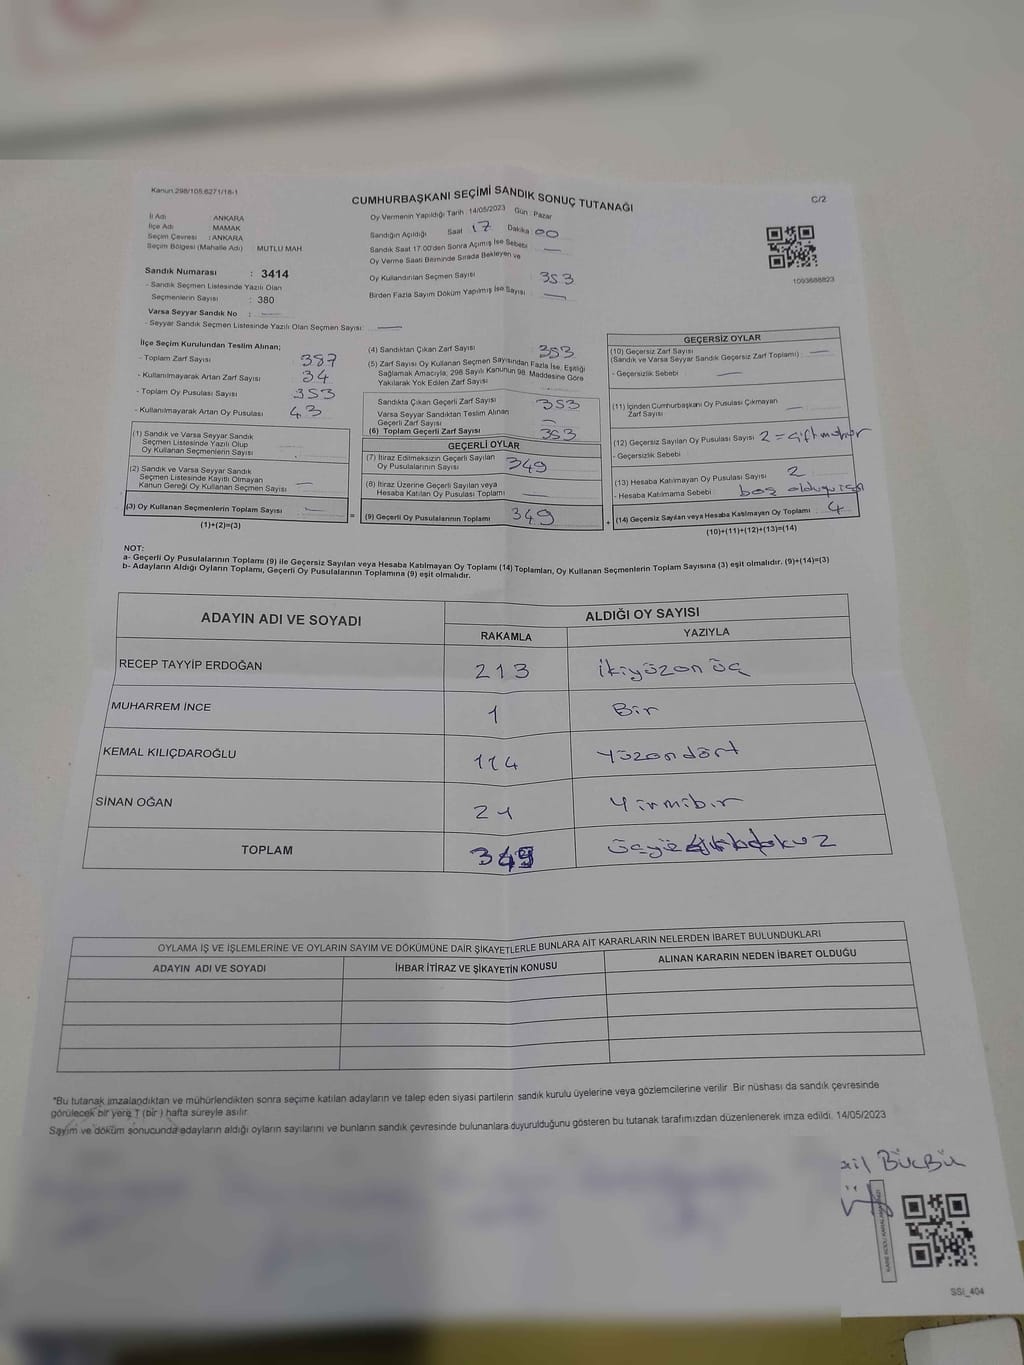 Kanun 298/105,6271/18-1
CUMHURBAŞKANI SEÇİMİ SANDIK SONUÇ TUTANAĞI
C/2
İl Adı : ANKARA
İlçe Adı : MAMAK
Seçim Çevresi : ANKARA
Seçim Bölgesi (Mahalle Adı) : MUTLU MAH
Sandık Numarası : 3414
- Sandık Seçmen Listesinde Yazılı Olan
Seçmenlerin Sayısı : 380
Varsa Seyyar Sandık No :
- Seyyar Sandık Seçmen Listesinde Yazılı Olan Seçmen Sayısı:
Oy Vermenin Yapıldığı Tarih : 14/05/2023 Gün : Pazar
Sandığın Açıldığı Saat 17 Dakika 00
Sandık Saat 17.00'den Sonra Açılmış İse Sebebi
Oy Verme Saati Bitiminde Sırada Bekleyen ve
Oy Kullandırılan Seçmen Sayısı 353
Birden Fazla Sayım Döküm Yapılmış İse Sayısı
1093688823
İlçe Seçim Kurulundan Teslim Alınan;
- Toplam Zarf Sayısı 387
- Kullanılmayarak Artan Zarf Sayısı 34
- Toplam Oy Pusulası Sayısı 353
- Kullanılmayarak Artan Oy Pusulası 43
(1) Sandık ve Varsa Seyyar Sandık
Seçmen Listesinde Yazılı Olup
Oy Kullanan Seçmenlerin Sayısı
(2) Sandık ve Varsa Seyyar Sandık
Seçmen Listesinde Kayıtlı Olmayan
Kanun Gereği Oy Kullanan Seçmen Sayısı
(3) Oy Kullanan Seçmenlerin Toplam Sayısı
(1)+(2)=(3)
(4) Sandıktan Çıkan Zarf Sayısı 353
(5) Zarf Sayısı Oy Kullanan Seçmen Sayısından Fazla İse, Eşitliği
Sağlamak Amacıyla, 298 Sayılı Kanunun 98. Maddesine Göre
Yakılarak Yok Edilen Zarf Sayısı
Sandıkta Çıkan Geçerli Zarf Sayısı 353
Varsa Seyyar Sandıktan Teslim Alınan
Geçerli Zarf Sayısı
(6) Toplam Geçerli Zarf Sayısı 353
GEÇERLİ OYLAR
(7) İtiraz Edilmeksizin Geçerli Sayılan
Oy Pusulalarının Sayısı 349
(8) İtiraz Üzerine Geçerli Sayılan veya
Hesaba Katılan Oy Pusulası Toplamı
= (9) Geçerli Oy Pusulalarının Toplamı 349
GEÇERSİZ OYLAR
(10) Geçersiz Zarf Sayısı
(Sandık ve Varsa Seyyar Sandık Geçersiz Zarf Toplamı)
- Geçersizlik Sebebi
(11) İçinden Cumhurbaşkanı Oy Pusulası Çıkmayan
Zarf Sayısı
(12) Geçersiz Sayılan Oy Pusulası Sayısı 2 = çift mühür
- Geçersizlik Sebebi
(13) Hesaba Katılmayan Oy Pusulası Sayısı 2
- Hesaba Katılmama Sebebi : boş olduğu için
+ (14) Geçersiz Sayılan veya Hesaba Katılmayan Oy Toplamı 4
(10)+(11)+(12)+(13)=(14)
NOT:
a- Geçerli Oy Pusulalarının Toplamı (9) ile Geçersiz Sayılan veya Hesaba Katılmayan Oy Toplamı (14) Toplamları, Oy Kullanan Seçmenlerin Toplam Sayısına (3) eşit olmalıdır. (9)+(14)=(3)
b- Adayların Aldığı Oyların Toplamı, Geçerli Oy Pusulalarının Toplamına (9) eşit olmalıdır.
ADAYIN ADI VE SOYADI ALDIĞI OY SAYISI
RAKAMLA YAZIYLA
RECEP TAYYİP ERDOĞAN 213 ikiyüzon üç
MUHARREM İNCE 1 Bir
KEMAL KILIÇDAROĞLU 114 Yüzondört
SİNAN OĞAN 21 Yirmibir
TOPLAM 349 üçyüzkırkdokuz
OYLAMA İŞ VE İŞLEMLERİNE VE OYLARIN SAYIM VE DÖKÜMÜNE DAİR ŞİKAYETLERLE BUNLARA AİT KARARLARIN NELERDEN İBARET BULUNDUKLARI
ADAYIN ADI VE SOYADI İHBAR İTİRAZ VE ŞİKAYETİN KONUSU ALINAN KARARIN NEDEN İBARET OLDUĞU
"Bu tutanak imzalandıktan ve mühürlendikten sonra seçime katılan adayların ve talep eden siyasi partilerin sandık kurulu üyelerine veya gözlemcilerine verilir. Bir nüshası da sandık çevresinde
görülecek bir yere 1 (bir) hafta süreyle asılır.
Sayım ve döküm sonucunda adayların aldığı oyların sayılarını ve bunların sandık çevresinde bulunanlara duyurulduğunu gösteren bu tutanak tarafımızdan düzenlenerek imza edildi. 14/05/2023
SSİ_404